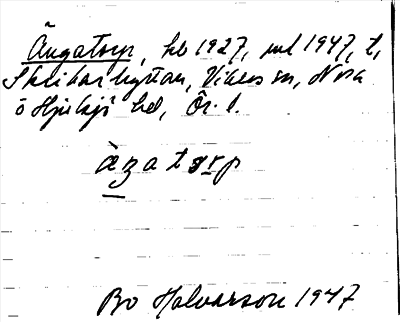 Ängatorp, hb 1927, utl 1947, t,
Skribarhyttan, Vikers sn, Nora
o Hjulsjö hd, Ör. l.
äzatorp
Bo Halvarson 1947